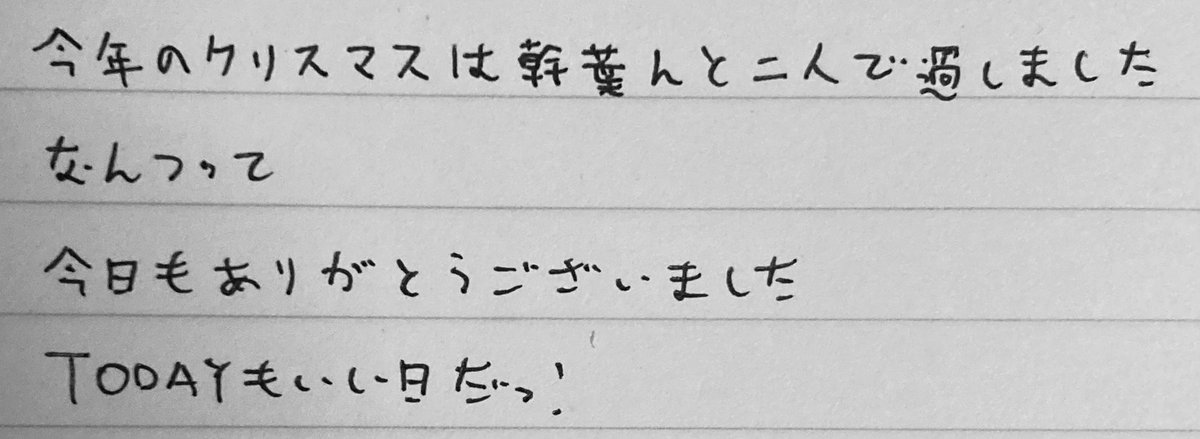 今年のクリスマスは幹葉んと二人で過しました
なんつって
今日もありがとうございました
TODAYもいい日だっ!